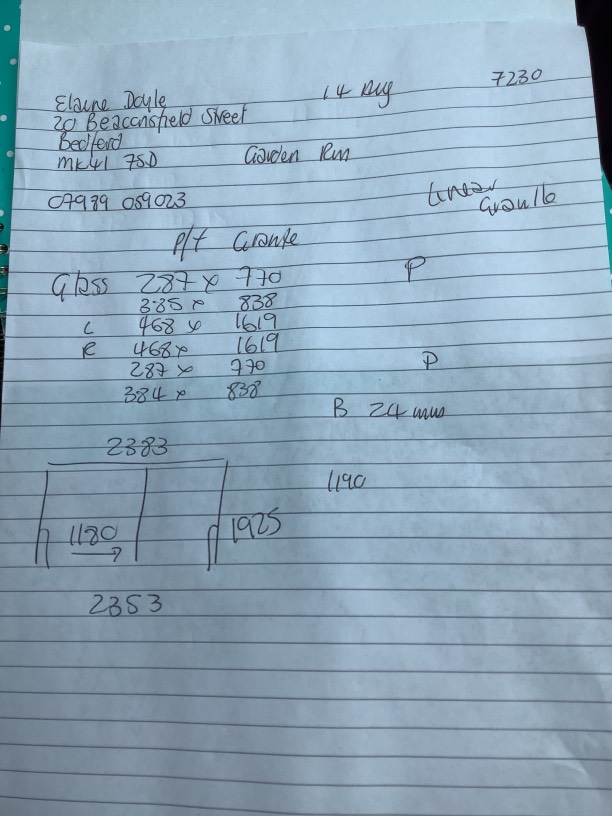 7230
Elaine Doyle 14 Aug
20 Beaconsfield Street
Bedford
MK41 7SD Garden Rm
07939 059023
Linear
P/f Granite
Glass 287 x 770 P
385 x 838
L 468 x 1619
R 468 x 1619
287 x 770 P
384 x 838
B 24 mm
2383
1190
1180 1925
2353